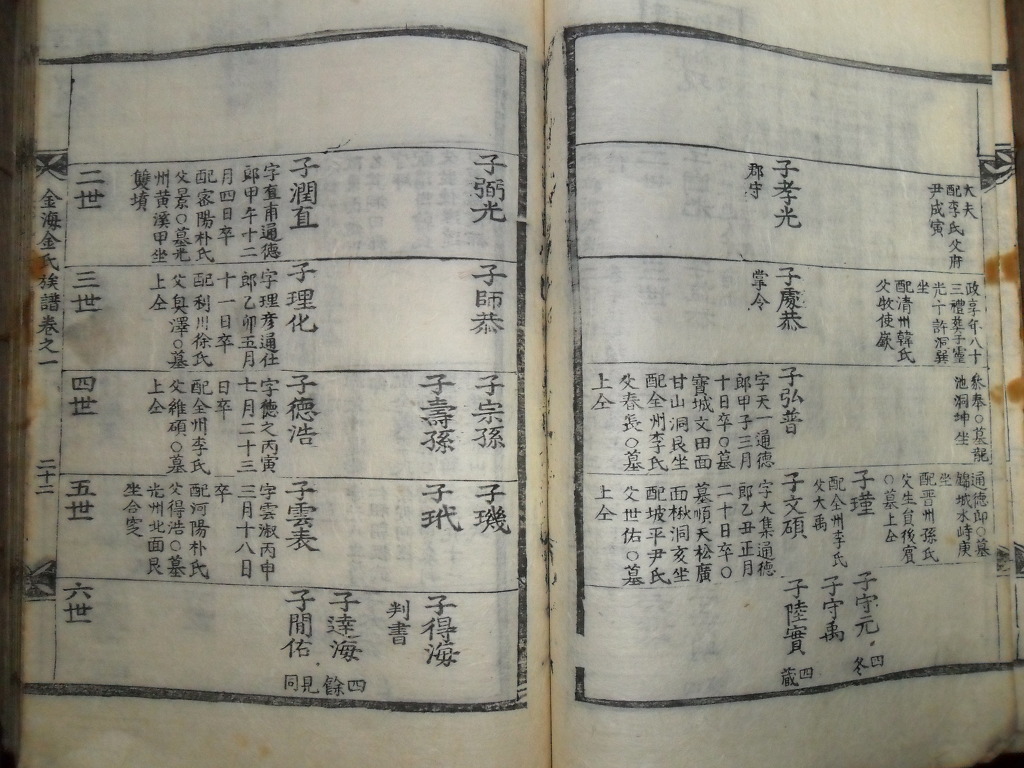 大夫
配李氏父府
尹成寅
子孝光
郡守
政享年八十
三禮葬子靈
光十許洞巽
坐
配清州韓氏
父牧使嶔
子慶恭
掌令
叅奉○墓龍
池洞坤坐
子弘普
字天一通德
郎甲子三月
十日卒○墓
寶城文田面
甘山洞艮坐
配全州李氏
父春長○墓
上仝
通德郎○墓
城水峙庚
坐
配晋州孫氏
父生員後賓
○墓上仝
子瑾
配全州李氏
父大禹
子文碩
字大集通德
郎乙丑正月
二十日卒○
墓順天松廣
面楸洞亥坐
配坡平尹氏
父世佑○墓
上仝
子守元
四冬
子守禹
子陸實
四藏
子弼光
子潤直
字直甫通德
郎甲午十二
月四日卒
配密陽朴氏
父景○墓光
州黄溪甲坐
雙墳
二世
子師恭
子理化
字理彦通仕
郎乙卯五月
十一日卒
配利川徐氏
父㚖澤○墓
上仝
三世
子宗孫
子壽孫
子德浩
字德之丙寅
七月二十三
日卒
配全州李氏
父維碩○墓
上仝
四世
子璣
子玳
子雲表
字雲淑丙申
三月十八日
卒
配河陽朴氏
父得浩○墓
光州北面艮
坐合窆
五世
子得海
判書
子達海
四餘
子閒佑
見同
六世
金海金氏族譜卷之一
二十二